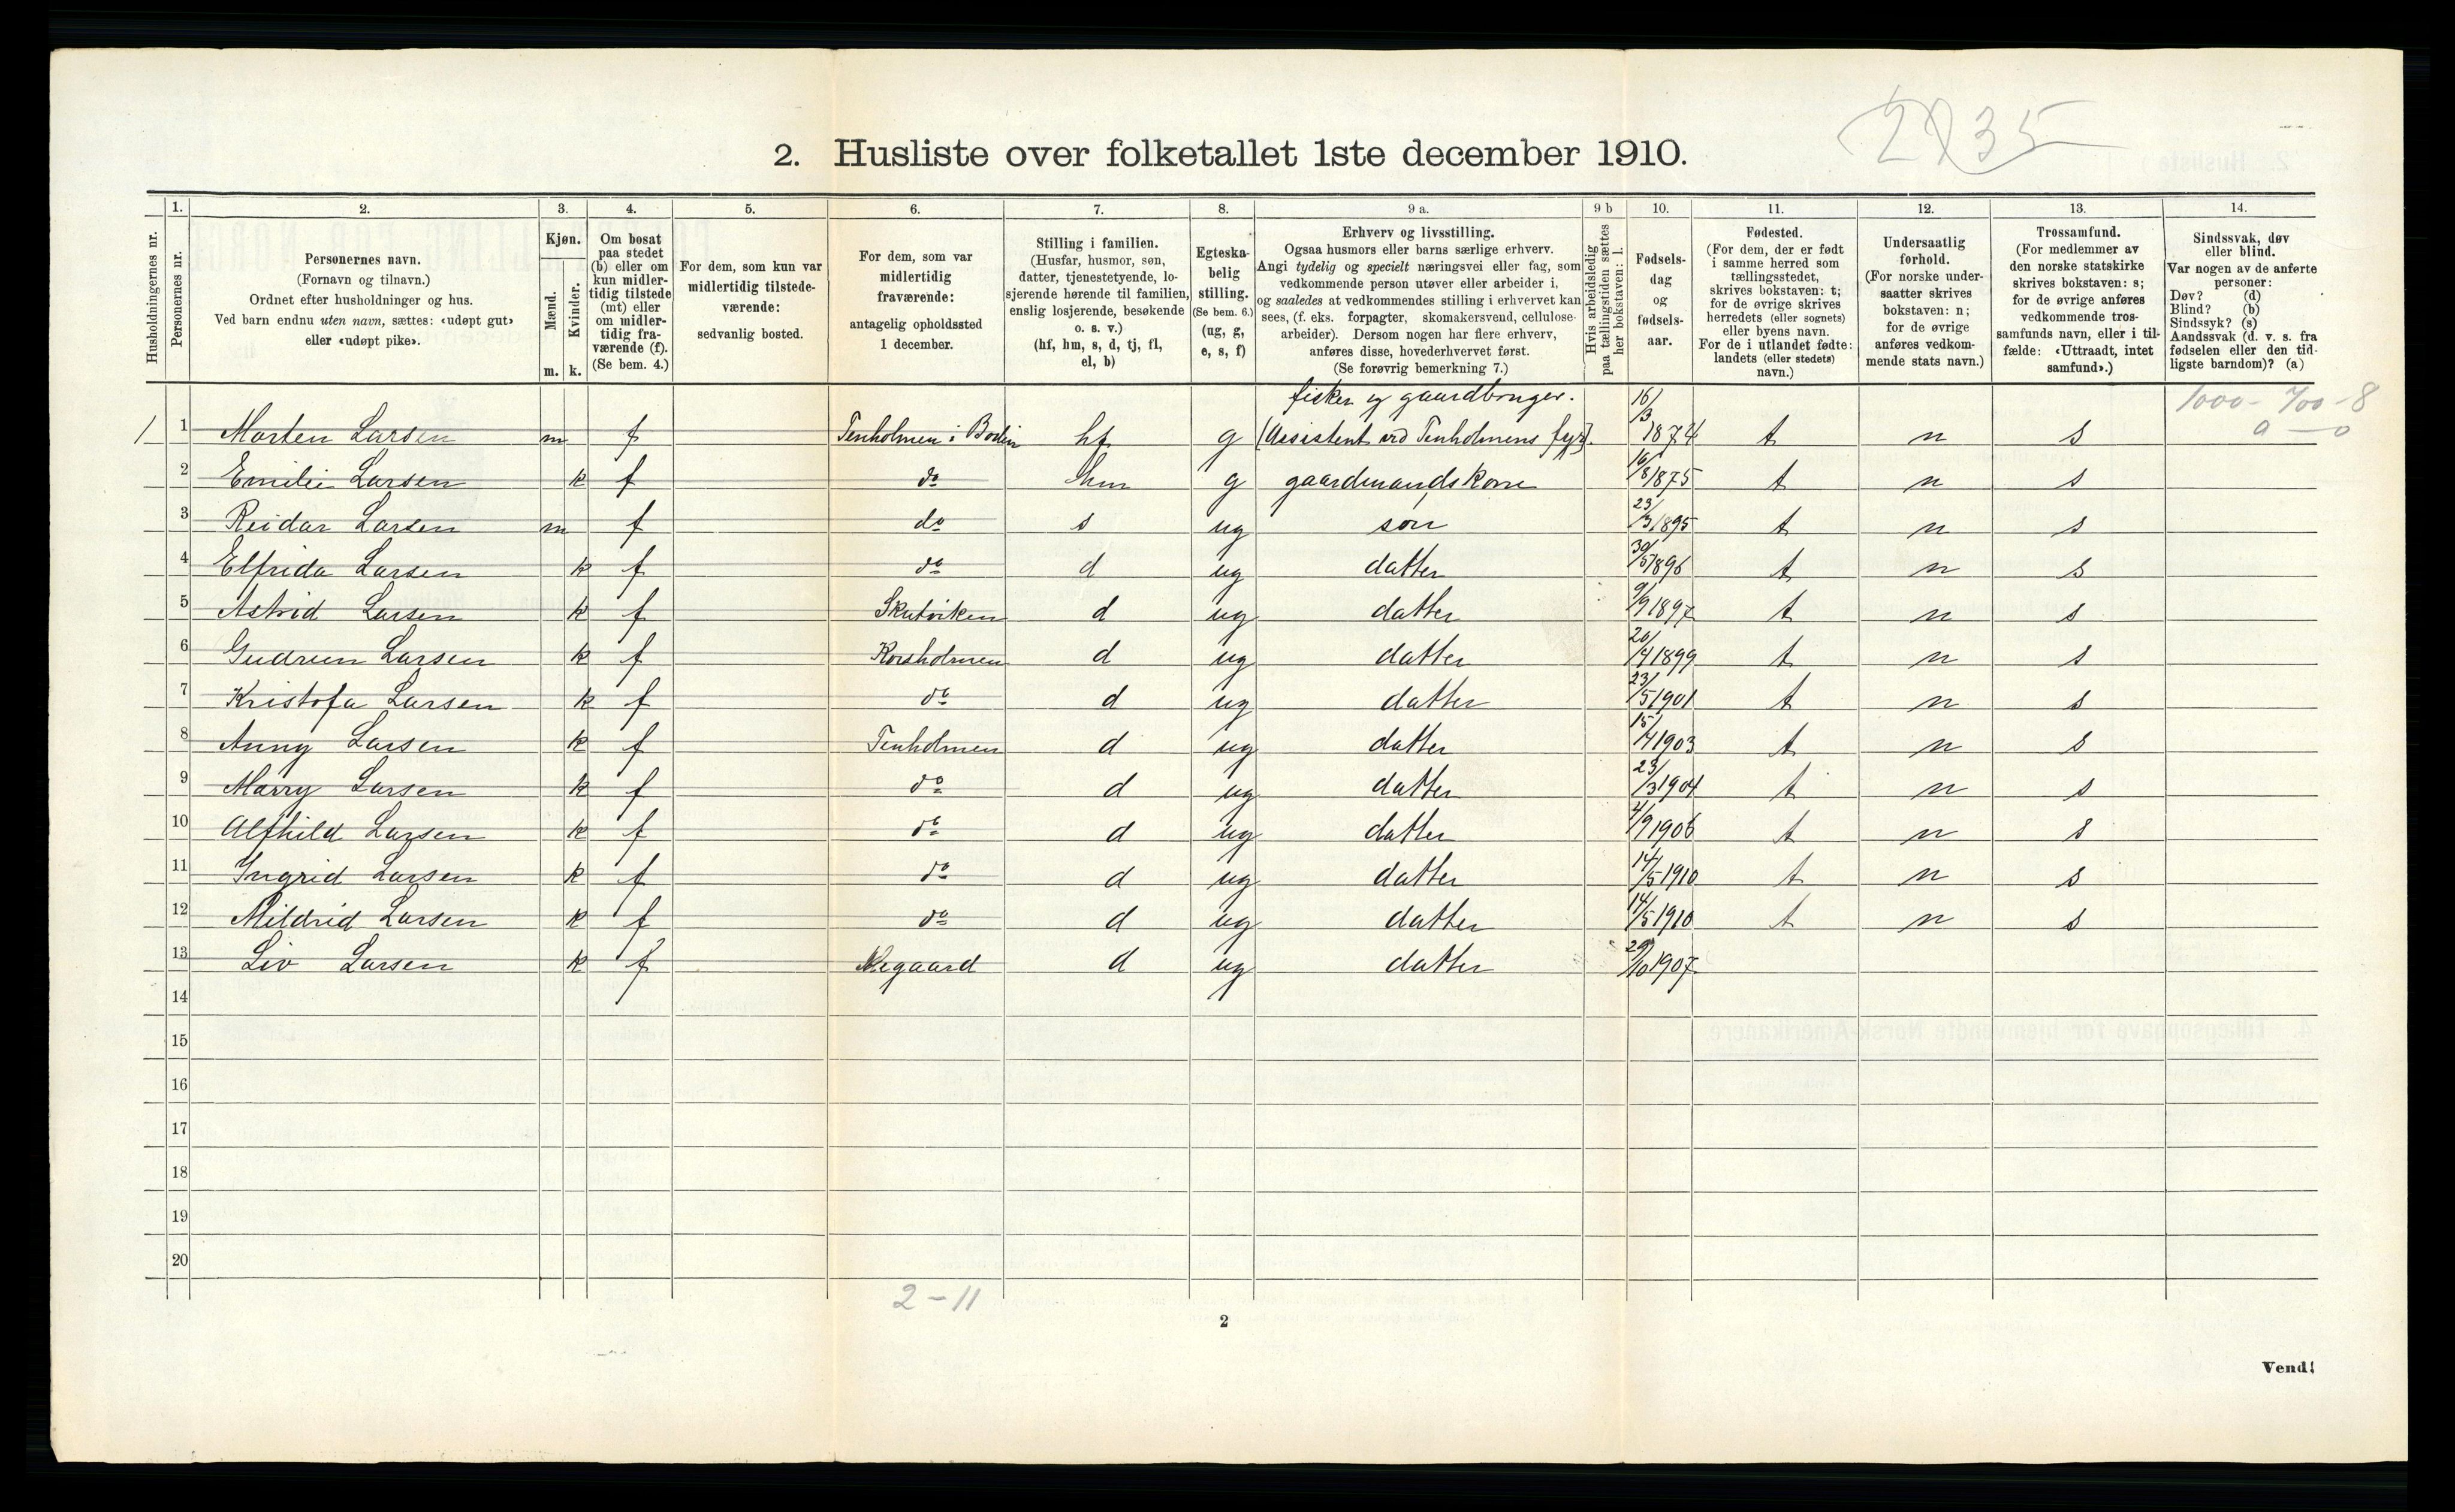 2235
2. Husliste over folketallet 1ste december 1910.
Husholdningernes nr.
1. Personernes nr.
2. Personernes navn. (Fornavn og tilnavn.) Ordnet efter husholdninger og hus. Ved barn endnu uten navn, sættes: «udøpt gut» eller «udøpt pike».
3. Kjøn. Mænd. m. Kvinder. k.
4. Om bosat paa stedet (b) eller om kun midlertidig tilstede (mt) eller om midlertidig fraværende (f). (Se bem. 4.)
5. For dem, som kun var midlertidig tilstedeværende: sedvanlig bosted.
6. For dem, som var midlertidig fraværende: antagelig opholdssted 1 december.
7. Stilling i familien. (Husfar, husmor, søn, datter, tjenestetyende, losjerende hørende til familien, enslig losjerende, besøkende o. s. v.) (hf, hm, s, d, tj, fl, el, b)
8. Egteskabelig stilling. (Se bem. 6.) (ug, g, e, s, f)
9 a. Erhverv og livsstilling. Ogsaa husmors eller barns særlige erhverv. Angi tydelig og specielt næringsvei eller fag, som vedkommende person utøver eller arbeider i, og saaledes at vedkommendes stilling i erhvervet kan sees, (f. eks. forpagter, skomakersvend, cellulosearbeider). Dersom nogen har flere erhverv, anføres disse, hovederhvervet først. (Se forøvrig bemerkning 7.)
9 b Hvis arbeidsledig paa tællingstiden sættes her bokstaven: l.
10. Fødselsdag og fødselsaar.
11. Fødested. (For dem, der er født i samme herred som tællingsstedet, skrives bokstaven: t; for de øvrige skrives herredets (eller sognets) eller byens navn. For de i utlandet fødte: landets (eller stedets) navn.)
12. Undersaatlig forhold. (For norske undersaatter skrives bokstaven: n; for de øvrige anføres vedkommende stats navn.)
13. Trossamfund. (For medlemmer av den norske statskirke skrives bokstaven: s; for de øvrige anføres vedkommende trossamfunds navn, eller i tilfælde: «Uttraadt, intet samfund».)
14. Sindssvak, døv eller blind. Var nogen av de anførte personer: Døv? (d) Blind? (b) Sindssyk? (s) Aandssvak (d. v. s. fra fødselen eller den tidligste barndom)? (a)
fisker og gaardbruger. 1000 - 700 - 8
1 1 Morten Larsen m f Tenholmen i Bodin hf g (Assistent ved Tenholmens fyr). 16/3 1874 t n s 0 — 0
2 Emilie Larsen k f do hm g gaardmandskone 16/8 1875 t n s
3 Reidar Larsen m f do s ug søn 23/3 1895 t n s
4 Elfrida Larsen k f do d ug datter 30/5 1896 t n s
5 Astrid Larsen k f Skutviken d ug datter 9/9 1897 t n s
6 Gudrun Larsen k f Korsholmen d ug datter 20/4 1899 t n s
7 Kristofa Larsen k f do d ug datter 23/5 1901 t n s
8 Anny Larsen k f Tenholmen d ug datter 15/4 1903 t n s
9 Marry Larsen k f do d ug datter 23/3 1904 t n s
10 Alfhild Larsen k f do d ug datter 4/9 1906 t n s
11 Ingrid Larsen k f do d ug datter 14/5 1910 t n s
12 Mildrid Larsen k f do d ug datter 14/5 1910 t n s
13 Liv Larsen k f d ug datter 29/10 1907
14
15
16
17
18
19
20
2 - 11
2
Vend!